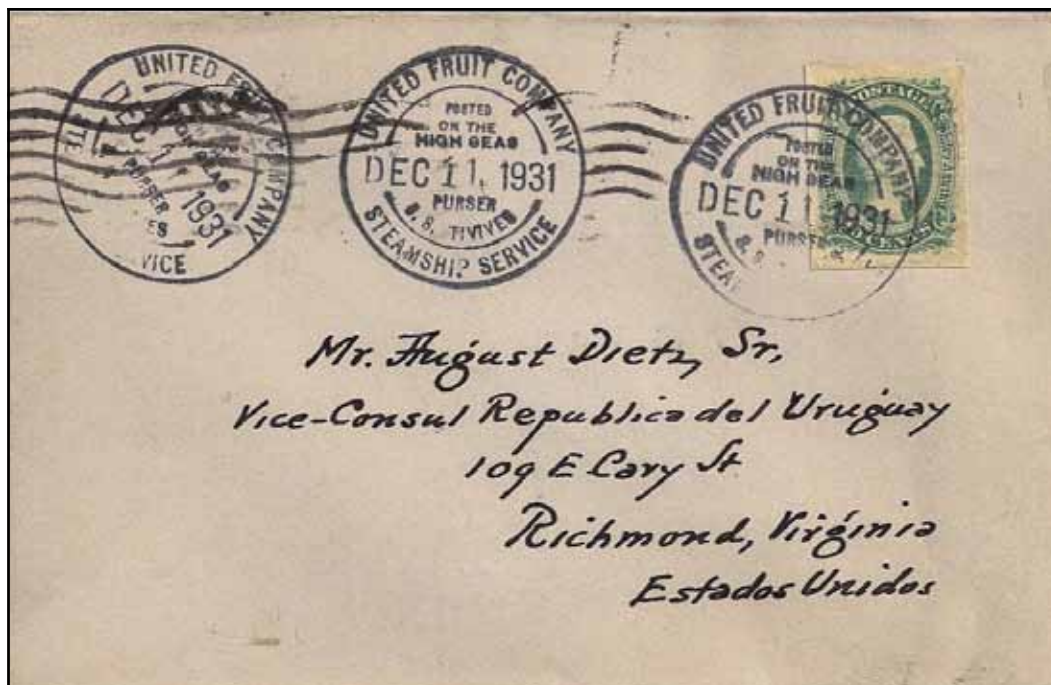 UNITED FRUIT COMPANY
DEC 11 1931
PURSER
UNITED FRUIT COMPANY
POSTED
ON THE
HIGH SEAS
DEC 11, 1931
PURSER
S.S. TIVIVES
STEAMSHIP SERVICE
UNITED FRUIT COMPANY
POSTED
ON THE
HIGH SEAS
DEC 11 1931
PURSER
POSTAGE
Mr. August Dietz, Sr,
Vice-Consul Republica del Uruguay
109 E Cary St
Richmond, Virginia
Estados Unidos